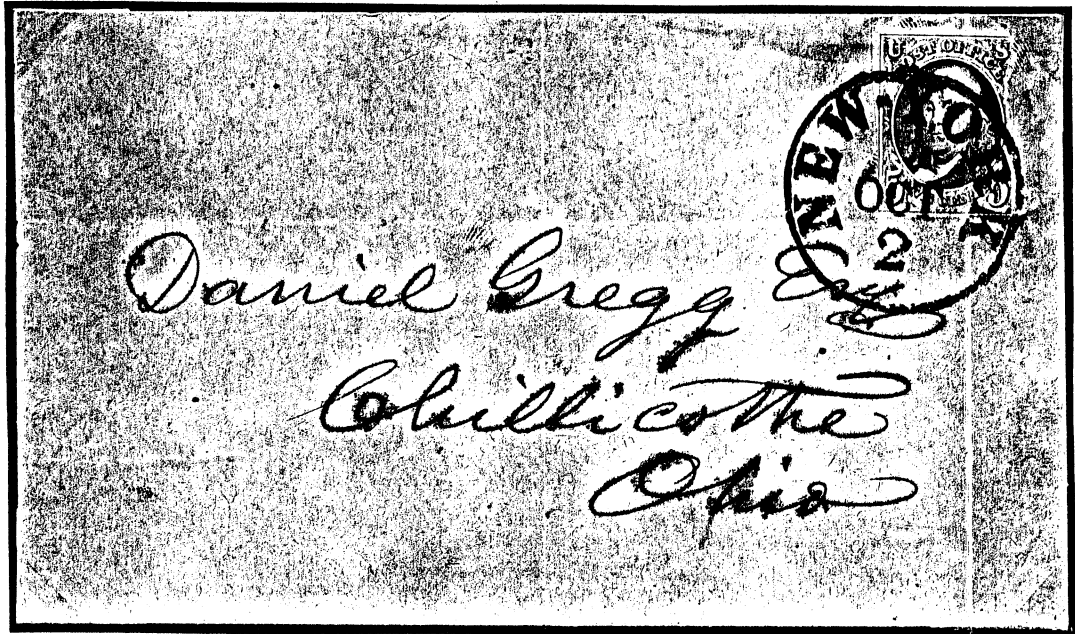 U.S. POST OFFICE
NEW YORK
OCT
2
Daniel Gregg Esq
Chillicothe
Ohio